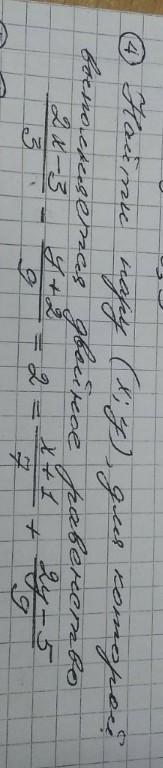 ④ Найти пару (x; y), для которой
выполняется двойное равенство
(2x-3)/3 - (y+2)/9 = 2 = (x+1)/7 + (2y-5)/9